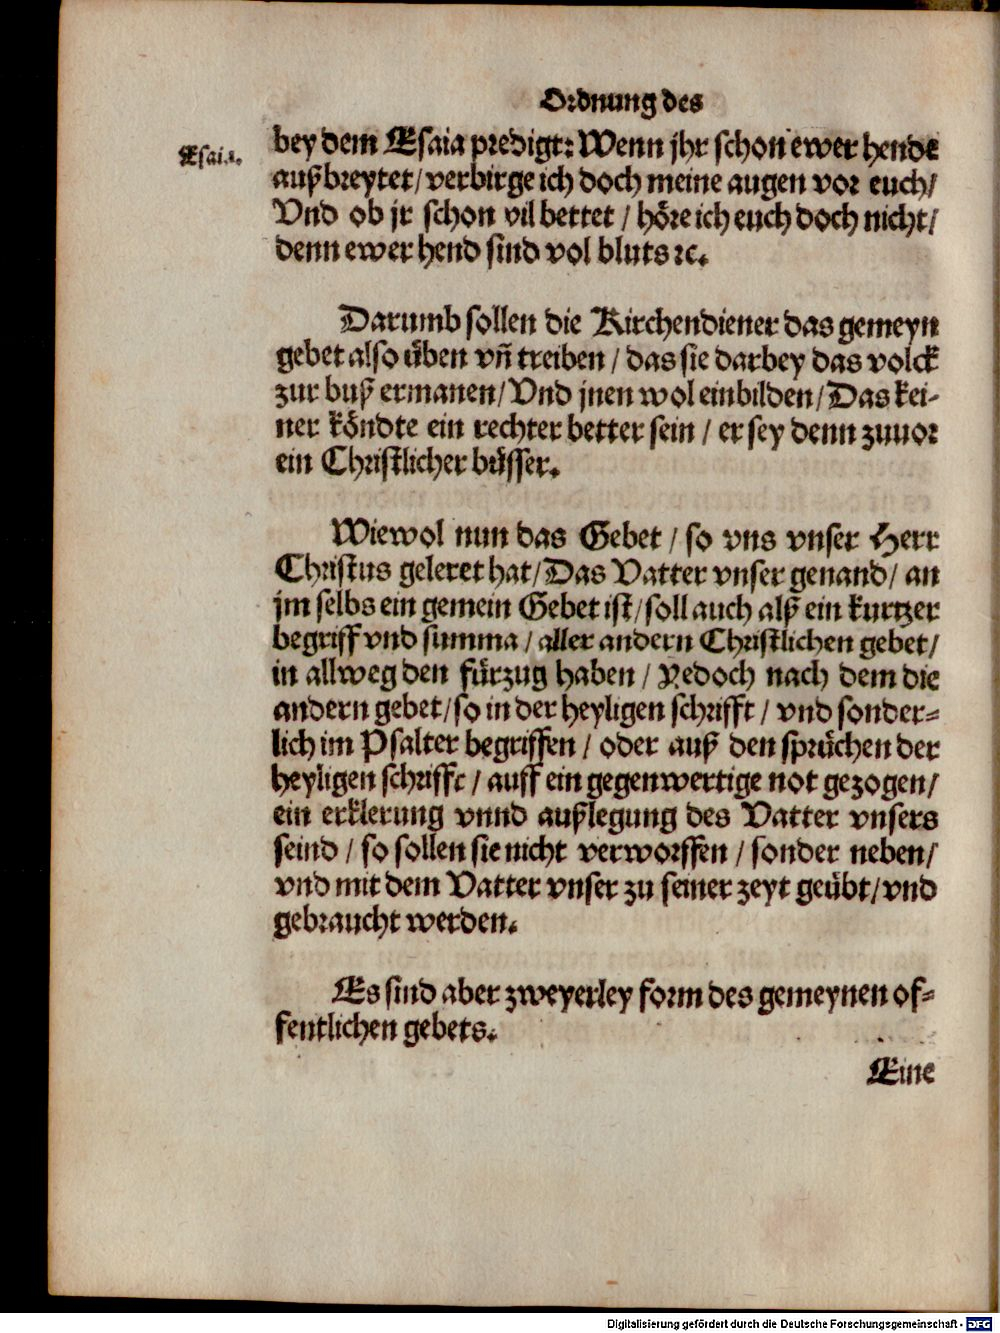 Ordnung des
Esai.1.
bey dem Esaia predigt: Wenn jhr schon ewer hende
außbreytet / verbirge ich doch meine augen vor euch /
Vnd ob jr schon vil bettet / höre ich euch doch nicht /
denn ewer hend sind vol bluts ꝛc.
Darumb sollen die Kirchendiener das gemeyn
gebet also üben vñ treiben / das sie darbey das volck
zur buß ermanen / Vnd jnen wol einbilden / Das kei-
ner köndte ein rechter better sein / er sey denn zuuor
ein Christlicher büsser.
Wiewol nun das Gebet / so vns vnser Herr
Christus geleret hat / Das Vatter vnser genand / an
jm selbs ein gemein Gebet ist / soll auch alß ein kurtzer
begriff vnd summa / aller andern Christlichen gebet /
in allweg den fürzug haben / Yedoch nach dem die
andern gebet / so in der heyligen schrifft / vnd sonder-
lich im Psalter begriffen / oder auß den sprüchen der
heyligen schrifft / auff ein gegenwertige not gezogen /
ein erklerung vnnd außlegung des Vatter vnsers
seind / so sollen sie nicht verworffen / sonder neben /
vnd mit dem Vatter vnser zu seiner zeyt geübt / vnd
gebraucht werden.
Es sind aber zweyerley form des gemeynen of-
fentlichen gebets.
Eine
Digitalisierung gefördert durch die Deutsche Forschungsgemeinschaft - DFG